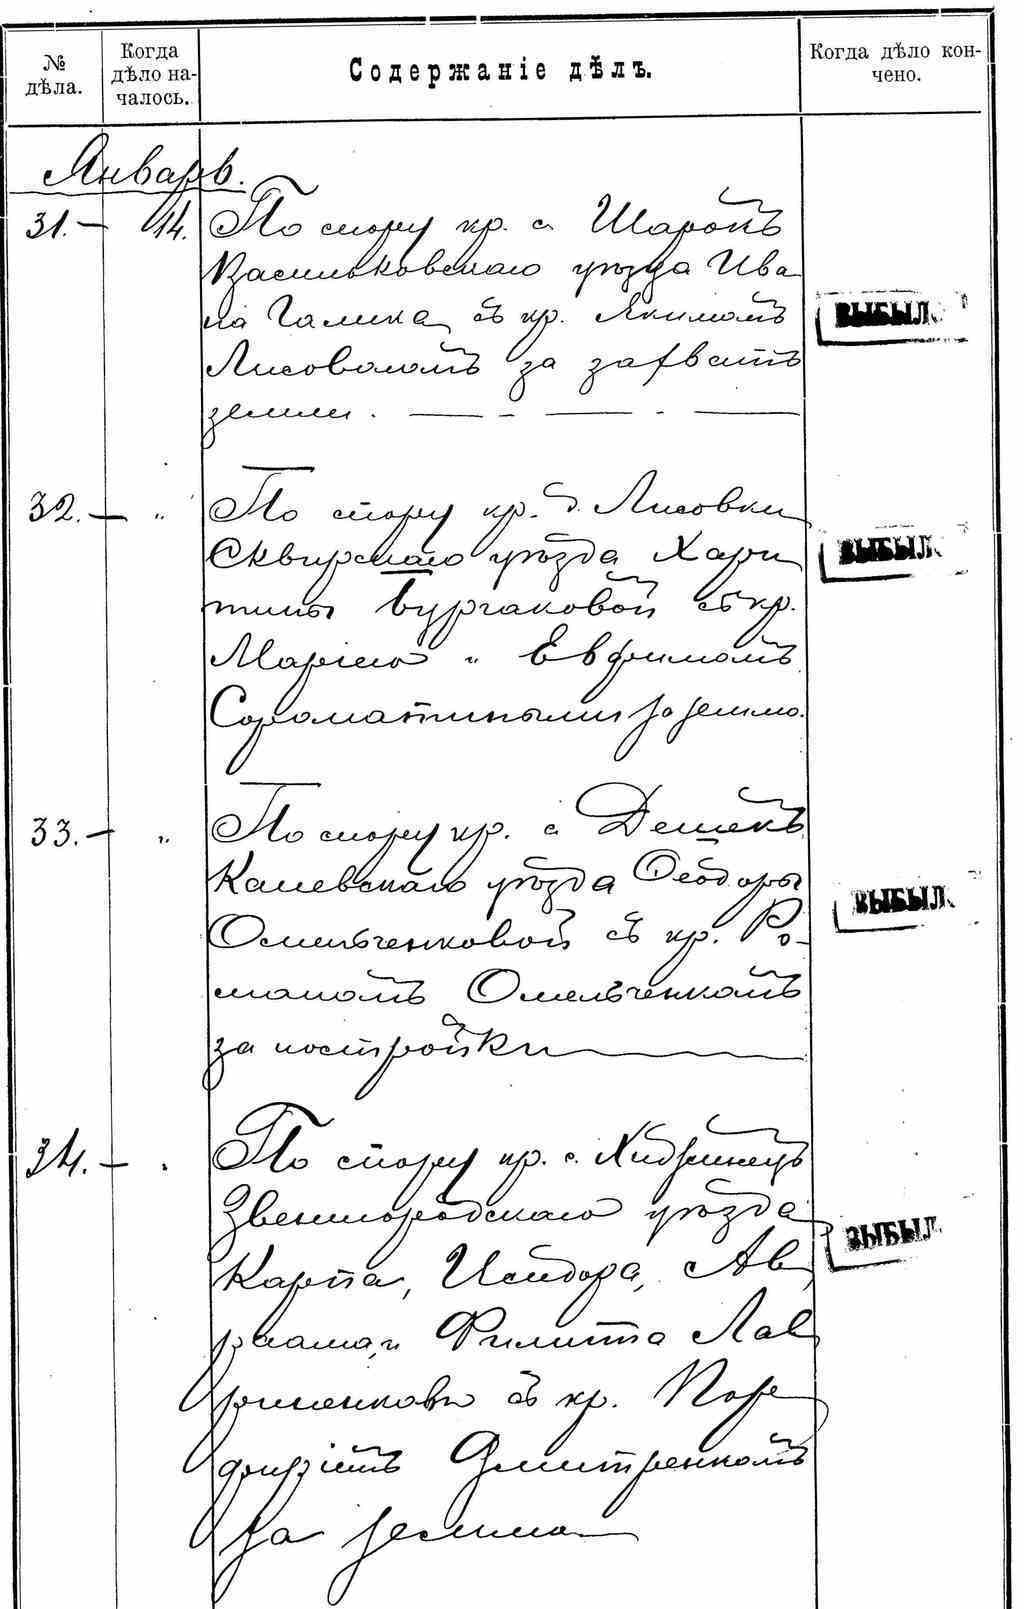 № дѣла.
Когда дѣло на-
чалось.
Содержаніе дѣлъ.
Когда дѣло кон-
чено.
Январь.
31.— 14. По спору кр. с. Шарокъ
Васильковскаго уѣзда Ива
на Галика съ кр. Якимомъ
Лисоволомъ за захватъ
земли. — - — - —
ВЫБЫЛ
32.— „ По спору кр. д. Лисовки
Сквирскаго уѣзда Хари
тины Бургаковой съ кр.
Маріею и Евфимомъ
Сороматиными за землю.
ВЫБЫЛ
33.— „ По спору кр. с. Дешекъ
Каневскаго уѣзда Ѳеодоры
Омельченковой съ кр. Ро-
маномъ Омельченкомъ
за постройки
ВЫБЫЛ
34.— „ По спору кр. с.
Звенигородскаго уѣзда
Карпа, Исидора, Ав
раама и Филиппа Лав
риненковы съ кр. Пор
фиріемъ Дмитренкомъ
за землю
ВЫБЫЛ